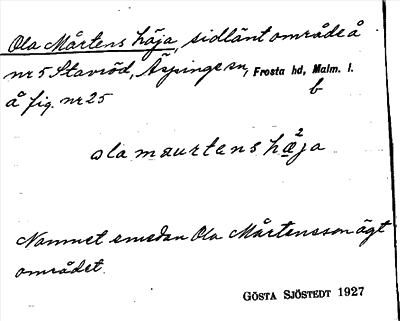 Ola Mårtens häja, sidlänt område å
nr 5 Stavröd, Äspinge sn, Frosta hd, Malm. l.
å fig. nr 25 b
ola maurtens hæ²ja
Namnet emedan Ola Mårtensson ägt
området.
GÖSTA SJÖSTEDT 1927